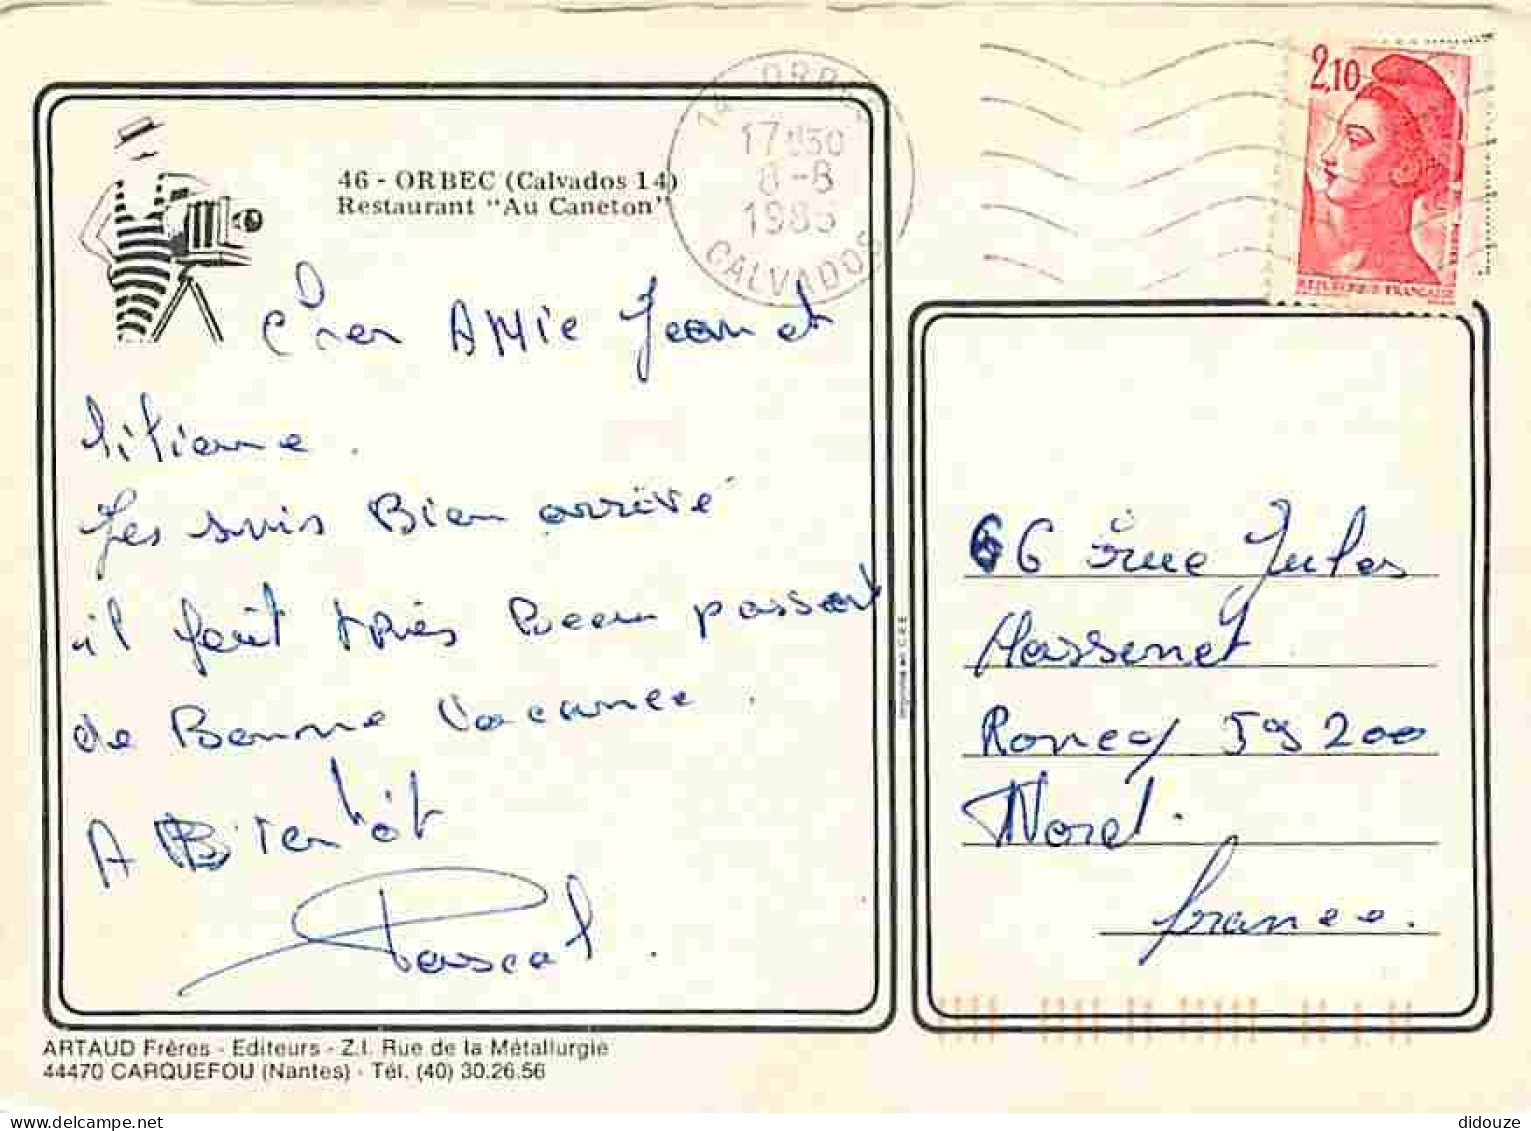 14 ORBEC
17H30
8-8
CALVADOS
2,10
REPUBLIQUE FRANÇAISE
46 - ORBEC (Calvados 14)
Restaurant "Au Caneton"
Cher AMie Jean et
liliane.
Jes suis Bien arrivé
il fait très beau passant
de Bonne Vacance.
A Bientôt
Pascal.
66 rue Jules
Massenet
Roncq 59200
Nord.
france.
ARTAUD Frères - Editeurs - Z.I. Rue de la Métallurgie
44470 CARQUEFOU (Nantes) - Tél. (40) 30.26.56
didouze